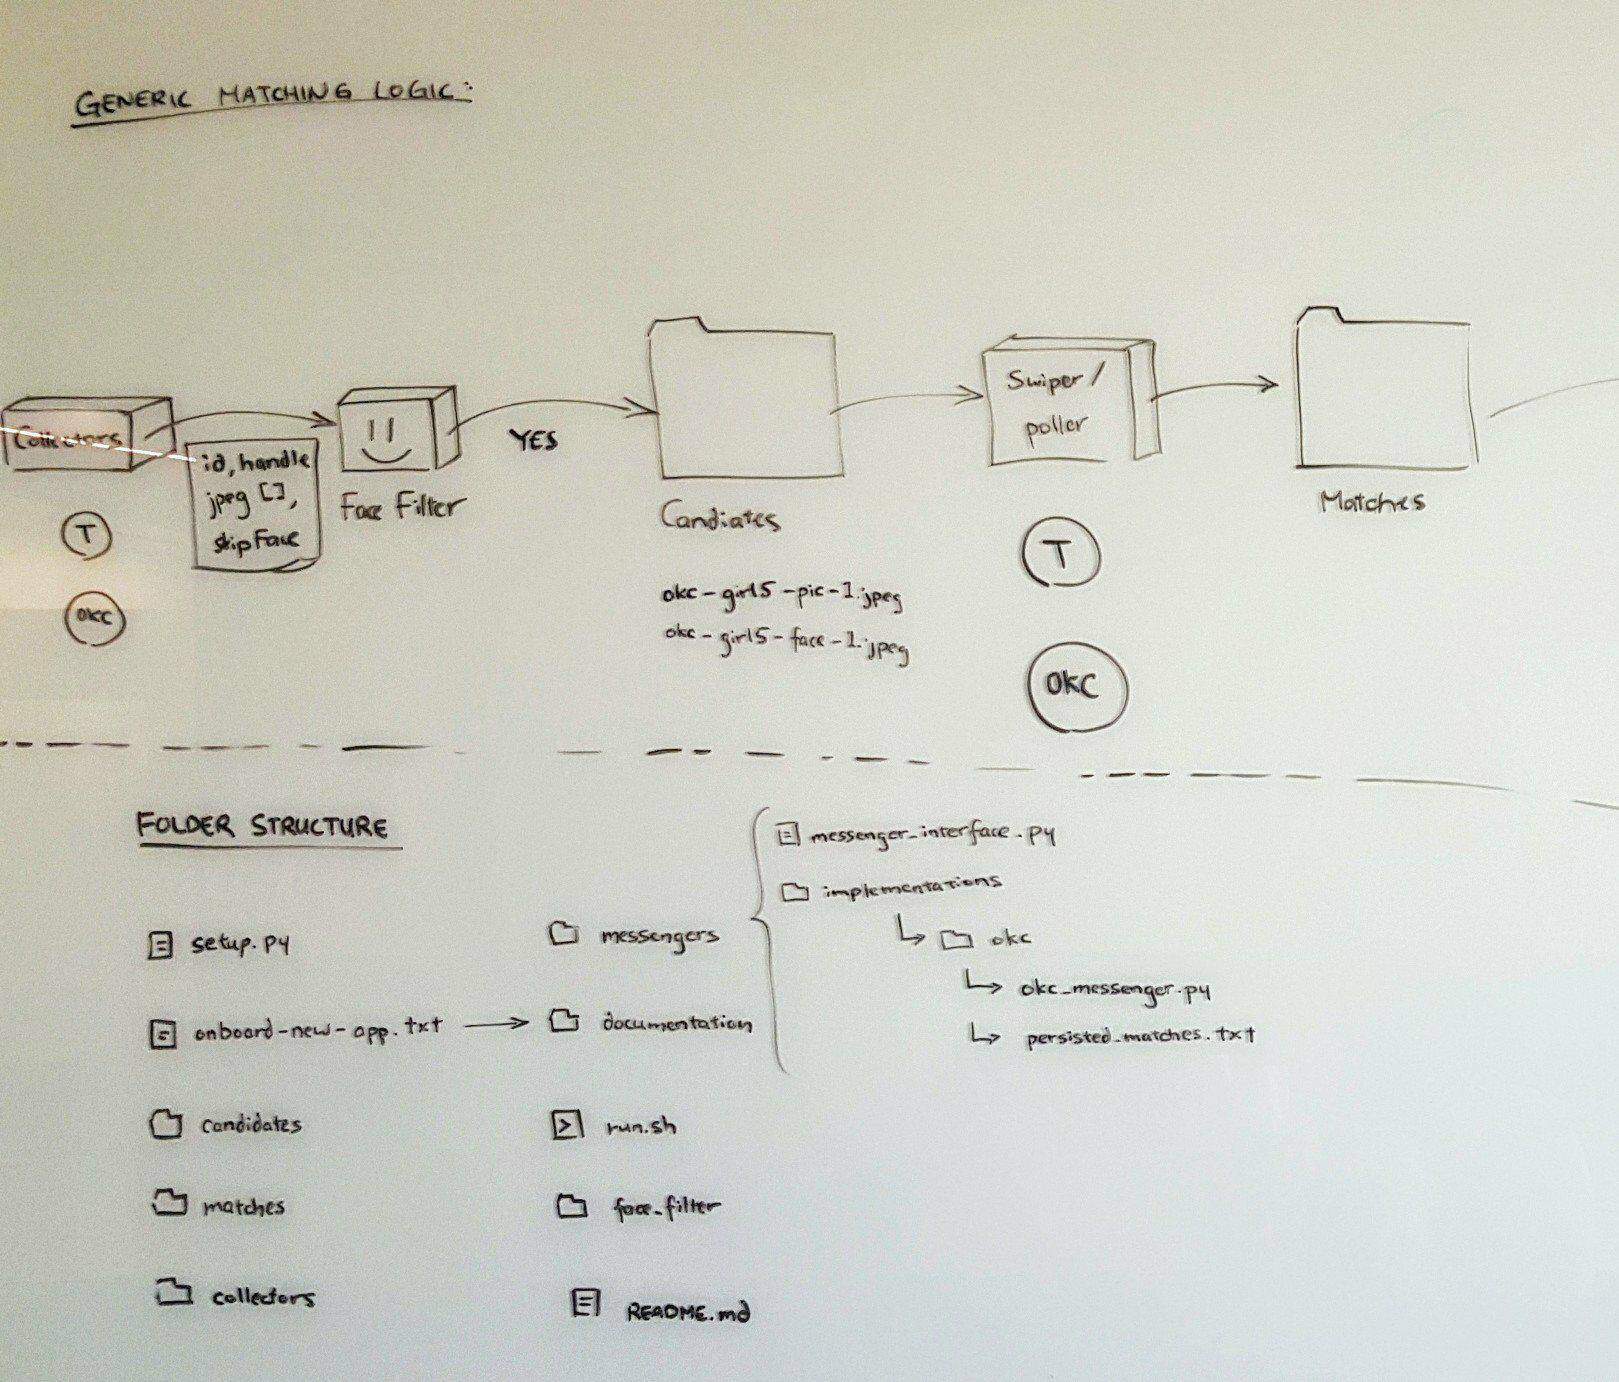 GENERIC MATCHING LOGIC:
Collectors
id, handle
jpeg [],
skipFace
T
OKC
Face Filter
YES
Candiates
okc-girl5-pic-1.jpeg
okc-girl5-face-1.jpeg
Swiper/
poller
T
OKC
Matches
FOLDER STRUCTURE
setup.py
onboard-new-app.txt
candidates
matches
collectors
messengers
documentation
run.sh
face_filter
README.md
messenger_interface.py
implementations
okc
okc_messenger.py
persisted_matches.txt